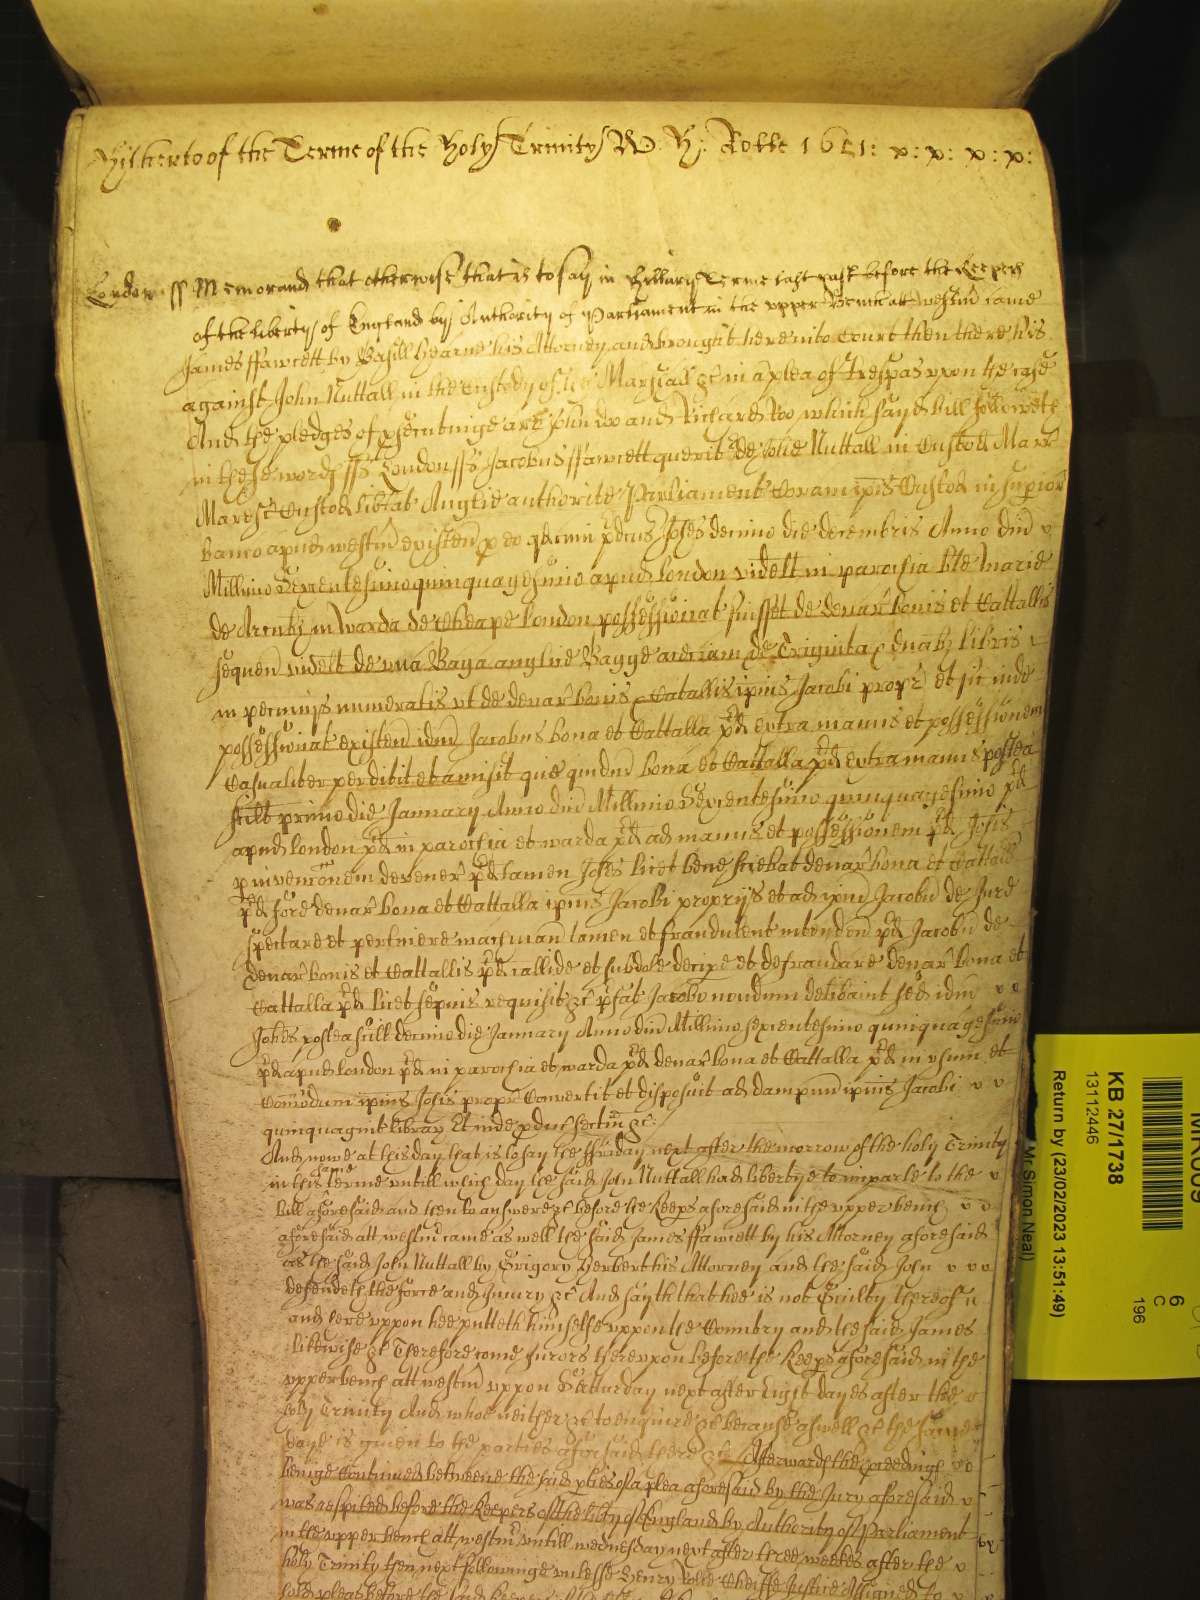 Hitherto of the Terme of the Holy Trinity W: Hj: Rolle 1651: x: x: x: x:
London ss Memorand that otherwise that is to say in Hillary Terme last past before the Keepers
of the liberty of England by Authority of Parliament in the upper Bench att westm came
James ffawcett by Basill Hearne his Attorney and brought here into Court then there his
against John Nuttall in the Custody of the Marshall &c in a plea of trespas upon the case
And the pledges of prosecutinge are John Doo and Richard Roo which sayd bill followeth
in these words ss London ss Jacobus ffawcett querit de Johe Nuttall in Custod Marr
Maresc Custod libtat Anglie authoritate Parliament Coram ipis Custod in superior
Banco apud westm existen p eo qd cum pdcus Johes decimo die decembris Anno dni
Millimo Sexcentesimo quinquagesimo apud London videlt in parochia bte Marie
de Arcubz in Warda de Cheape London possessionat fuisset de denar bonis et Cattallis
sequen videlt de una Baga anglice Bagge ac etiam de Triginta & duabz libris
in pecunijs numeratis ut de denar bonis & Catallis ipius Jacobi propr et sic inde
possessionat existen idm Jacobus bona et Cattalla pd extra manus et possessionem
Casualiter perdidit et amisit que quidm bona et Cattalla pd extra manus postea
scilt primo die January Anno dni Millimo Sexcentesimo quinquagesimo pd
apud London pd in parochia et warda pd ad manus et possessionem pd Johis
p invenconem devener pd tamen Johes licet bene sciebat denar bona et Cattalla
pd fore denar bona et Cattalla ipius Jacobi proprijs et ad ipm Jacobu de Jure
spectare et pertinere machinan tamen et fraudulent intenden pd Jacobu de
denar bonis et Cattallis pd callide et subdole decipe et defraudare denar bona et
Cattalla pd licet sepius requisit &c pfat Jacobo nondum delibavit sed idm
Johes postea scilt decimo die January Anno dni Millimo sexcentesimo quinquagesimo
pd apud London pd in parochia et warda pd denar bona et Cattalla pd in usum et
Comodum ipius Johis propr Convertit et disposuit ad dampnu ipius Jacobi
quinquagint librar Et inde pduc sectam &c
And nowe at this day that is to say the ffriday next after the morrow of the holy Trinity
in this same terme untill which day the said John Nuttall had libertye to imparle to the
bill aforesaid and then to answere &c before the Keeps aforesaid in the upper bench
aforesaid att westm came as well the said James ffawcett by his Attorney aforesaid
as the said John Nuttall by Grigory Herbert his Attorney and the said John
defendeth the force and Jniury &c And sayth that hee is not Guilty thereof
and hereuppon hee putteth himselfe uppon the Country and the said James
likewise &c Therefore come Jurors thereupon before the Keeps aforesaid in the
upper bench att westm uppon Satturday next after Eight dayes after the
holy Trinity And whoe neither &c to enquire &c because aswell &c the same
daye is given to the parties aforesaid there &c Afterwards the pceedings
beinge Continued betweene the said pties of a plea aforesaid by the Jury aforesaid
was respited before the Keepers of the liberty of England by Authority of Parliament
in the upper bench att westm untill wednesday next after three weekes after the
holy Trinity then next followinge unlesse Henry Rolle Cheiffe Justice Assigned to
hold pleas before the said Keepers
KB 27/1738
13112446
Return by (23/02/2023 13:51:49)
Mr Simon Neal)
6
C
196